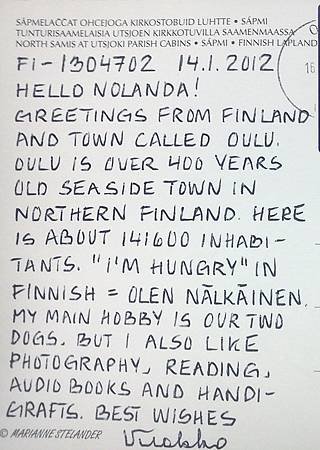 SÁPMELAČČAT OHCEJOGA KIRKOSTOBUID LUHTTE • SÁPMI
TUNTURISAAMELAISIA UTSJOEN KIRKKOTUVILLA SAAMENMAASSA
NORTH SAMIS AT UTSJOKI PARISH CABINS • SÁPMI • FINNISH LAPLAND
FI-1304702 14.1.2012
16
HELLO NOLANDA!
GREETINGS FROM FINLAND
AND TOWN CALLED OULU.
OULU IS OVER 400 YEARS
OLD SEASIDE TOWN IN
NORTHERN FINLAND. HERE
IS ABOUT 141600 INHABI-
TANTS. "I'M HUNGRY" IN
FINNISH = OLEN NÄLKÄINEN.
MY MAIN HOBBY IS OUR TWO
DOGS. BUT I ALSO LIKE
PHOTOGRAPHY, READING,
AUDIO BOOKS AND HANDI-
GRAFTS. BEST WISHES
© MARIANNE STELANDER